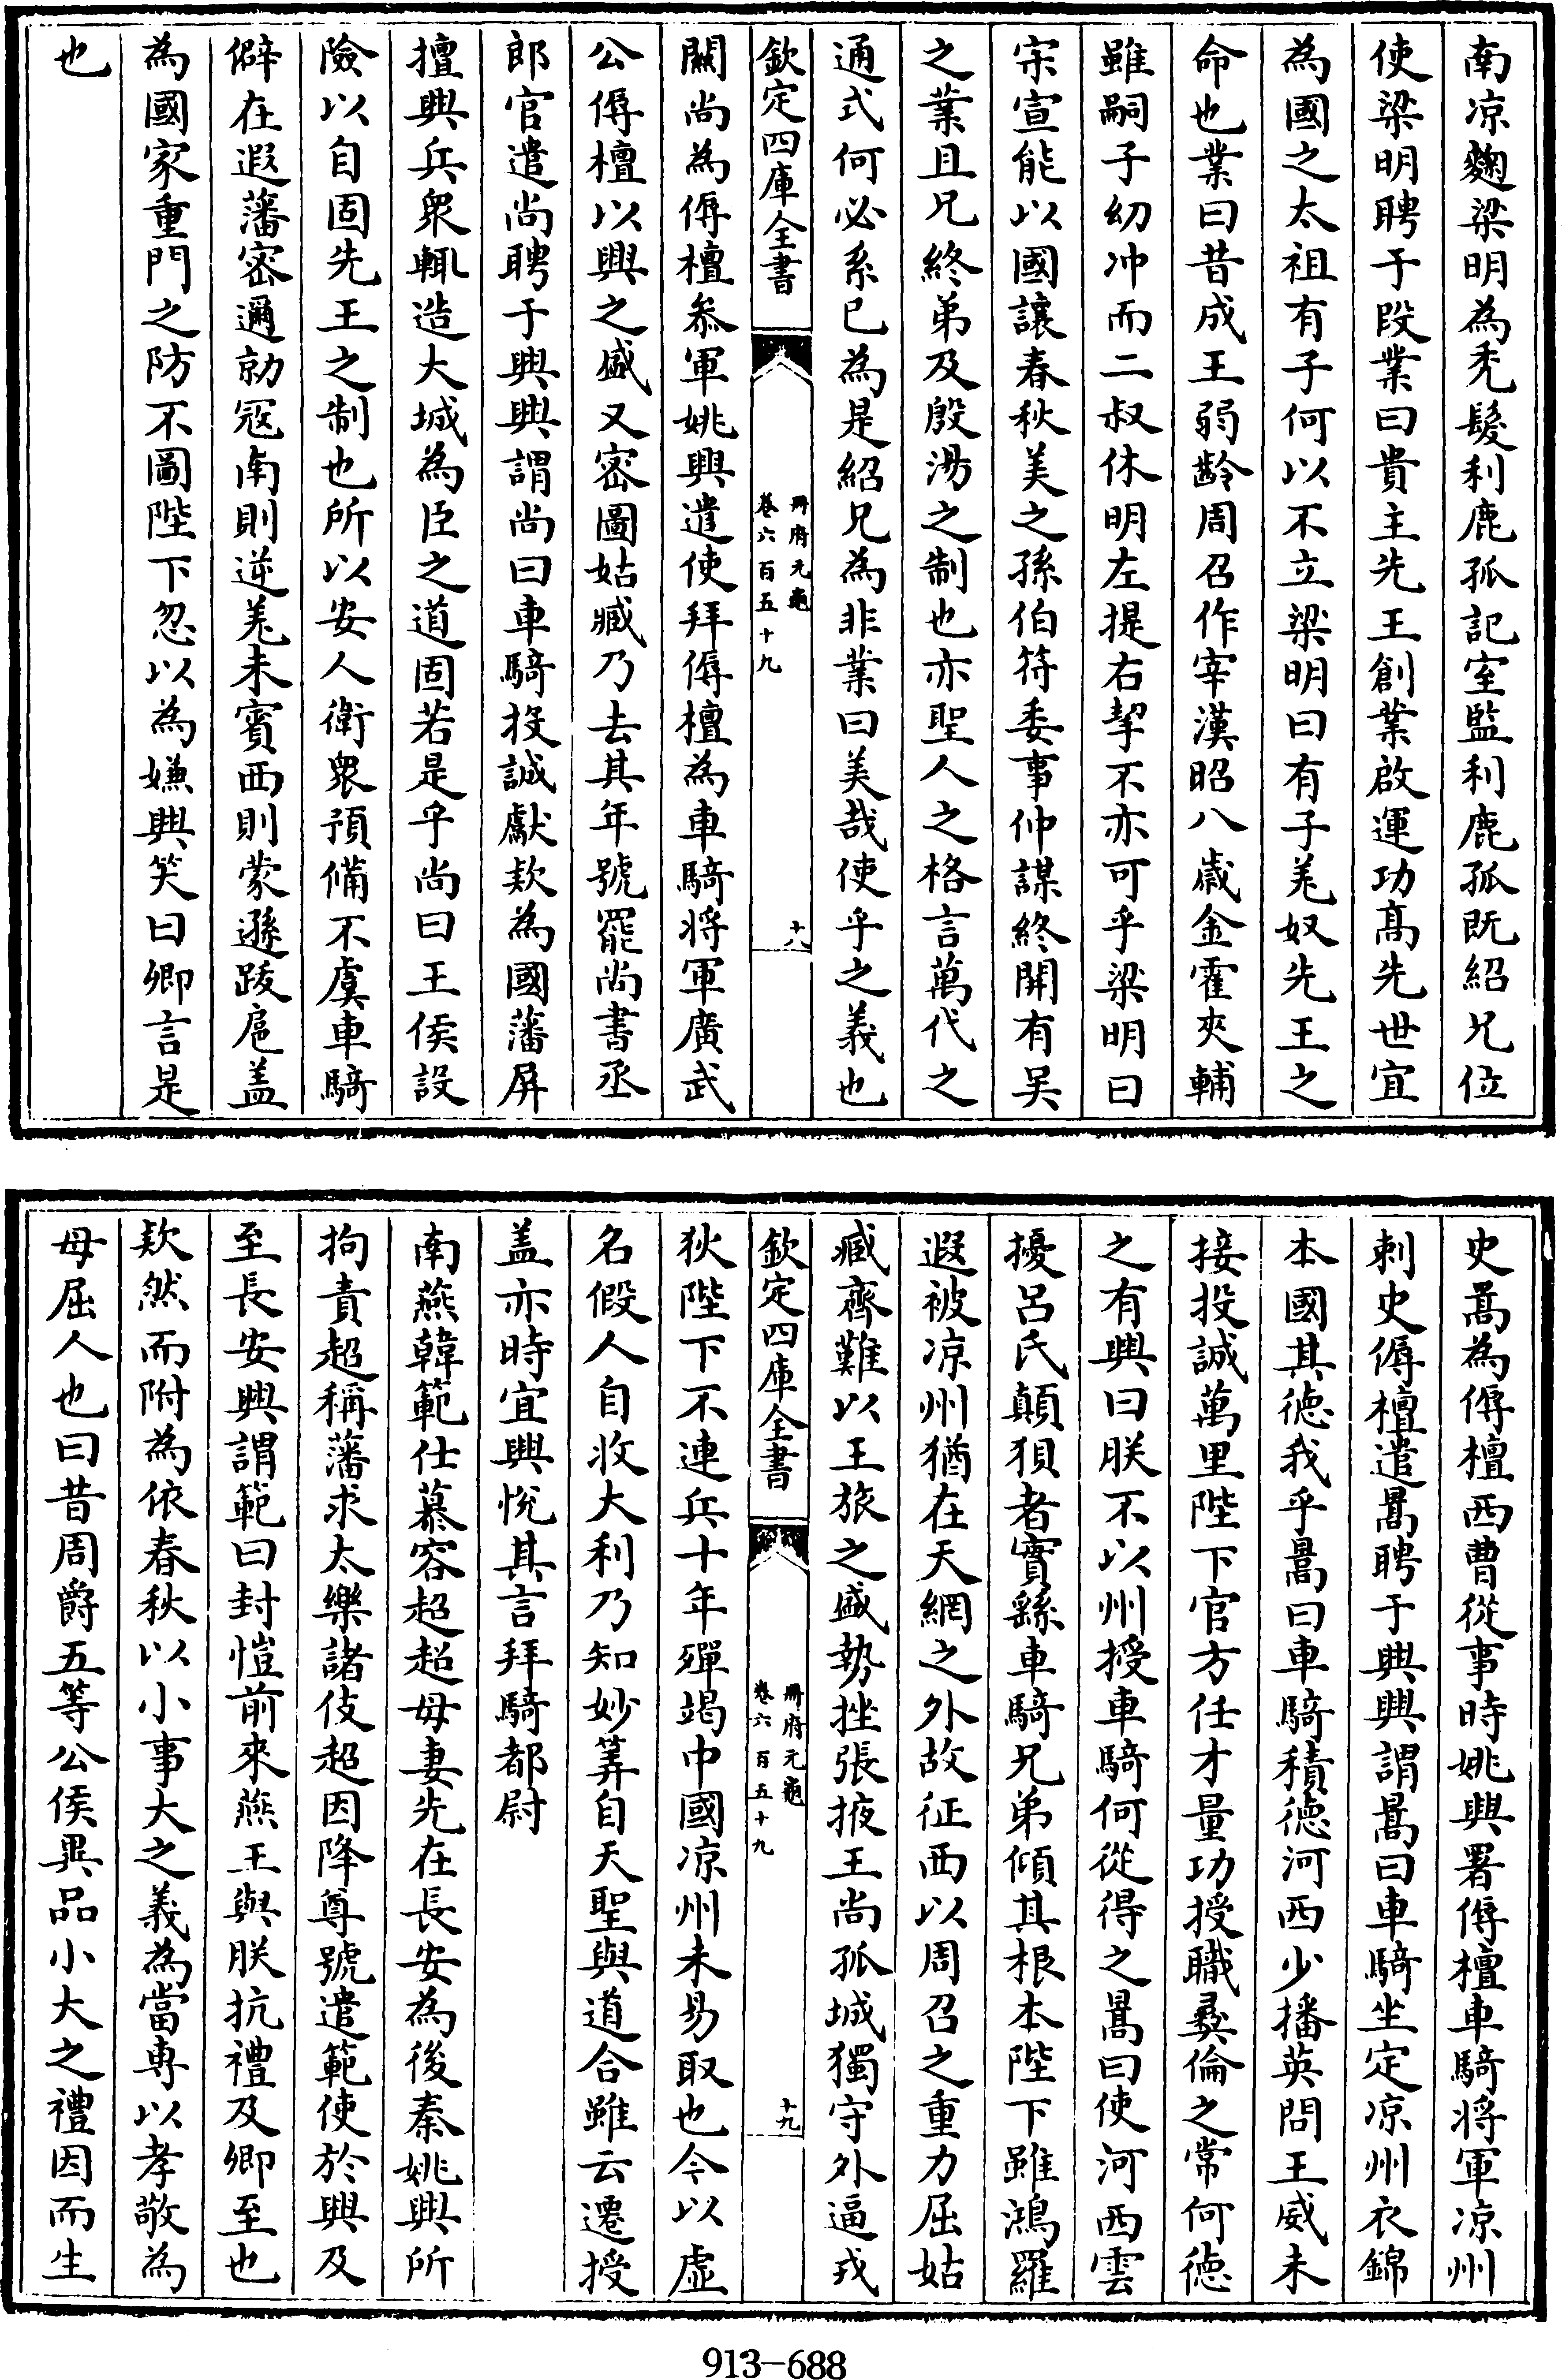 南凉麴梁明為禿髮利鹿孤記室監利鹿孤既紹兄位
使梁明聘于段業曰貴主先王創業啟運功髙先世宜
為國之太祖有子何以不立梁明曰有子羌奴先王之
命也業曰昔成王弱齡周召作宰漢昭八歲金霍夾輔
雖嗣子幼冲而二叔休明左提右挈不亦可乎梁明曰
宋宣能以國讓春秋美之孫伯符委事仲謀終開有吴
之業且兄終弟及殷湯之制也亦聖人之格言萬代之
通式何必系已為是紹兄為非業曰美哉使乎之義也
欽定四庫全書
冊府元龜
卷六百五十九
十八
關尚為傉檀叅軍姚興遣使拜傉檀為車騎將軍廣武
公傉檀以興之盛又密圖姑臧乃去其年號罷尚書丞
郎官遣尚聘于興興謂尚曰車騎投誠獻欵為國藩屏
擅興兵衆輒造大城為臣之道固若是乎尚曰王侯設
險以自固先王之制也所以安人衛衆預備不虞車騎
僻在遐藩密邇勍冦南則逆羌未賓西則蒙遜跋扈盖
為國家重門之防不圖陛下忽以為嫌興笑曰卿言是
也
史暠為傉檀西曹從事時姚興署傉檀車騎將軍凉州
刺史傉檀遣暠聘于興興謂暠曰車騎坐定凉州衣錦
本國其徳我乎暠曰車騎積徳河西少播英問王威未
接投誠萬里陛下官方任才量功授職彛倫之常何徳
之有興曰朕不以州授車騎何從得之暠曰使河西雲
擾呂氏顛狽者實繇車騎兄弟傾其根本陛下雖鴻羅
遐被凉州猶在天網之外故征西以周召之重力屈姑
臧齊難以王旅之盛勢挫張掖王尚孤城獨守外逼戎
欽定四庫全書
冊府元龜
卷六百五十九
十九
狄陛下不連兵十年殫竭中國凉州未易取也今以虚
名假人自收大利乃知妙筭自天聖與道合雖云遷授
盖亦時宜興悅其言拜騎都尉
南燕韓範仕慕容超超母妻先在長安為後秦姚興所
拘責超稱藩求太樂諸伎超因降尊號遣範使於興及
至長安興謂範曰封愷前來燕王與朕抗禮及卿至也
欵然而附為依春秋以小事大之義為當專以孝敬為
母屈人也曰昔周爵五等公侯異品小大之禮因而生
913-688